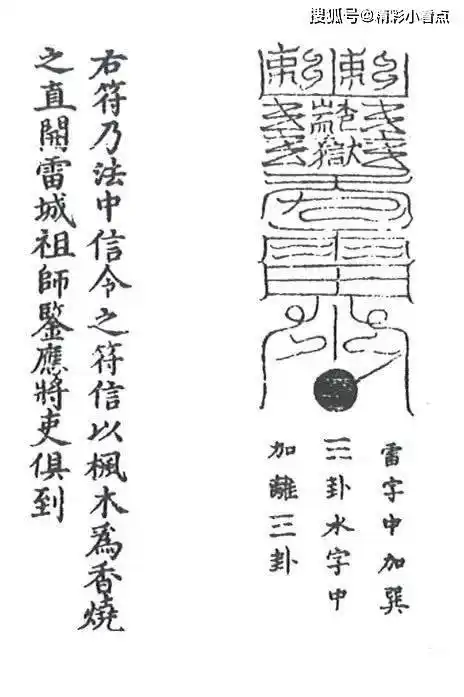 搜狐号@精彩小看点
雷字中加巽
☴卦水字中
加離☲卦
右符乃法中信令之符信以楓木爲香燒
之直開雷城祖師鑒應將吏俱到